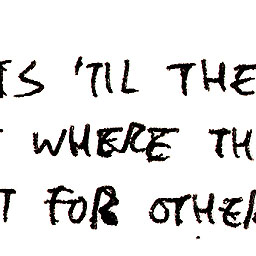 'TIL THE
WHERE TH
FOR OTHER